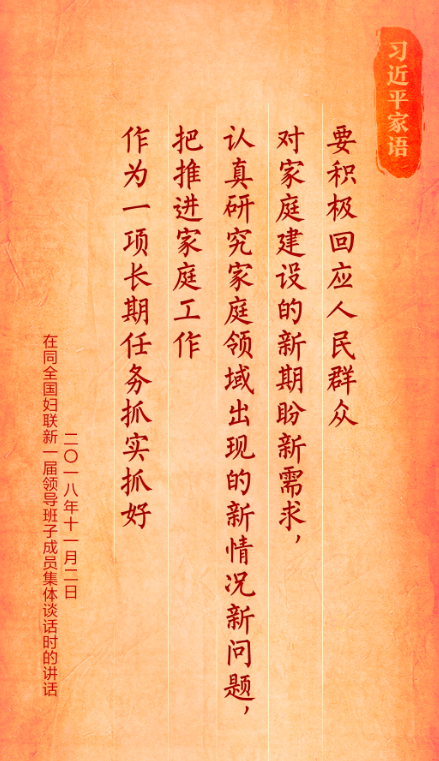 习近平家语
要积极回应人民群众
对家庭建设的新期盼新需求，
认真研究家庭领域出现的新情况新问题，
把推进家庭工作
作为一项长期任务抓实抓好
二〇一八年十一月二日
在同全国妇联新一届领导班子成员集体谈话时的讲话